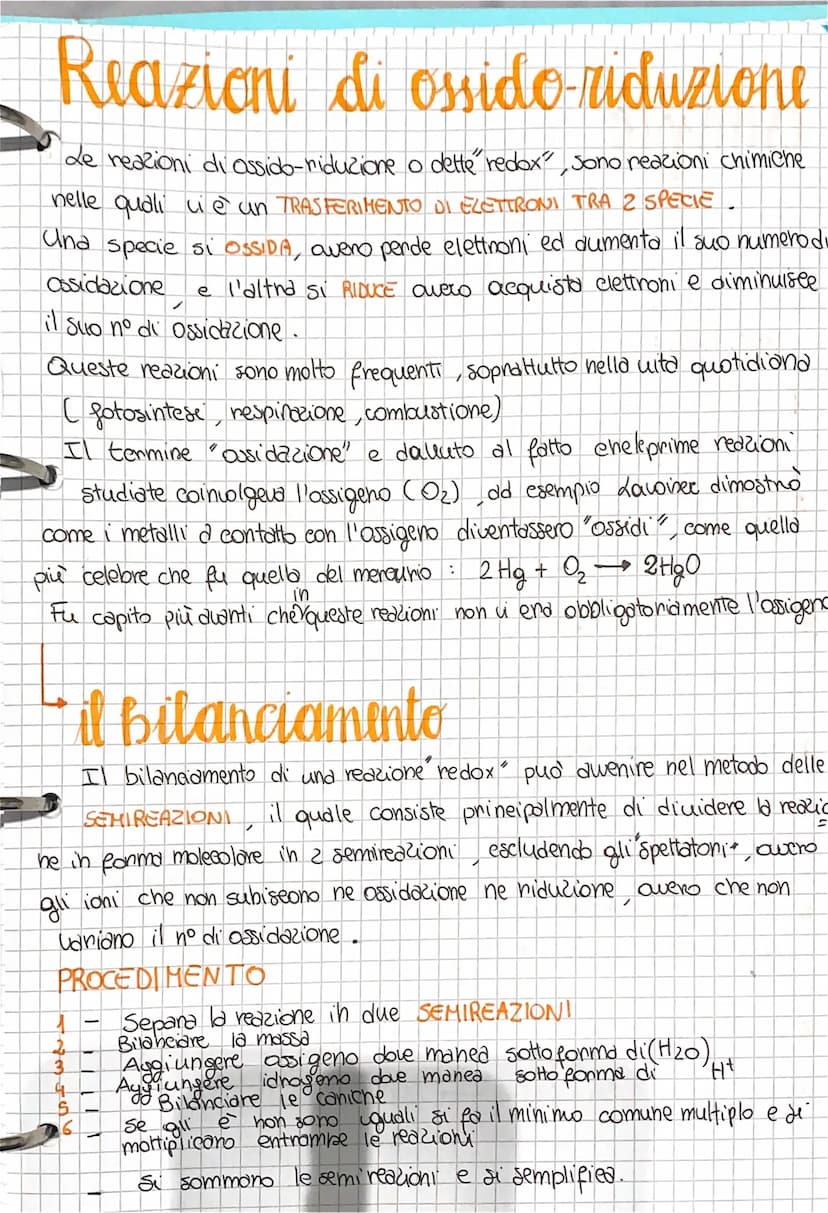 Reazioni di ossido-riduzione
Le reazioni di ossido-riduzione o dette "redox", sono reazioni chimiche
nelle quali vi è un TRASFERIMENTO DI ELETTRONI TRA 2 SPECIE.
Una specie si OSSIDA, avero perde elettroni ed aumenta il suo numero di
ossidazione, e l'altra si RIDUCE avero acquista elettroni e diminuisce
il suo n° di ossidazione.
Queste reazioni sono molto frequenti, soprattutto nella vita quotidiana
(fotosintesi, respirazione, combustione)
Il termine "ossidazione" e dovuto al fatto che le prime reazioni
studiate coinvolgeva l'ossigeno (O2), ad esempio Lavoiser dimostrò
come i metalli a contatto con l'ossigeno diventassero "ossidi", come quella
più celebre che fu quella del mercurio : 2Hg + O2 → 2HgO
Fu capito più avanti che in queste reazioni non vi era obbligatoriamente l'ossigeno
il bilanciamento
Il bilanciamento di una reazione "redox" può avvenire nel metodo delle
SEMIREAZIONI, il quale consiste principalmente di dividere la reazio
ne in forma molecolare in 2 semireazioni, escludendo gli "spettatori", avero
gli ioni che non subiscono ne ossidazione ne riduzione, avero che non
variano il n° di ossidazione.
PROCEDIMENTO
1 - Separa la reazione in due SEMIREAZIONI
2 - Bilanciare la massa
3 - Aggiungere ossigeno dove manca sotto forma di (H2O)
4 - Aggiungere idrogeno dove manca sotto forma di H+
5 - Bilanciare le cariche
6 - Se gli e- non sono uguali si fa il minimo comune multiplo e si
moltiplicano entrambe le reazioni
- si sommano le semireazioni e si semplifica.